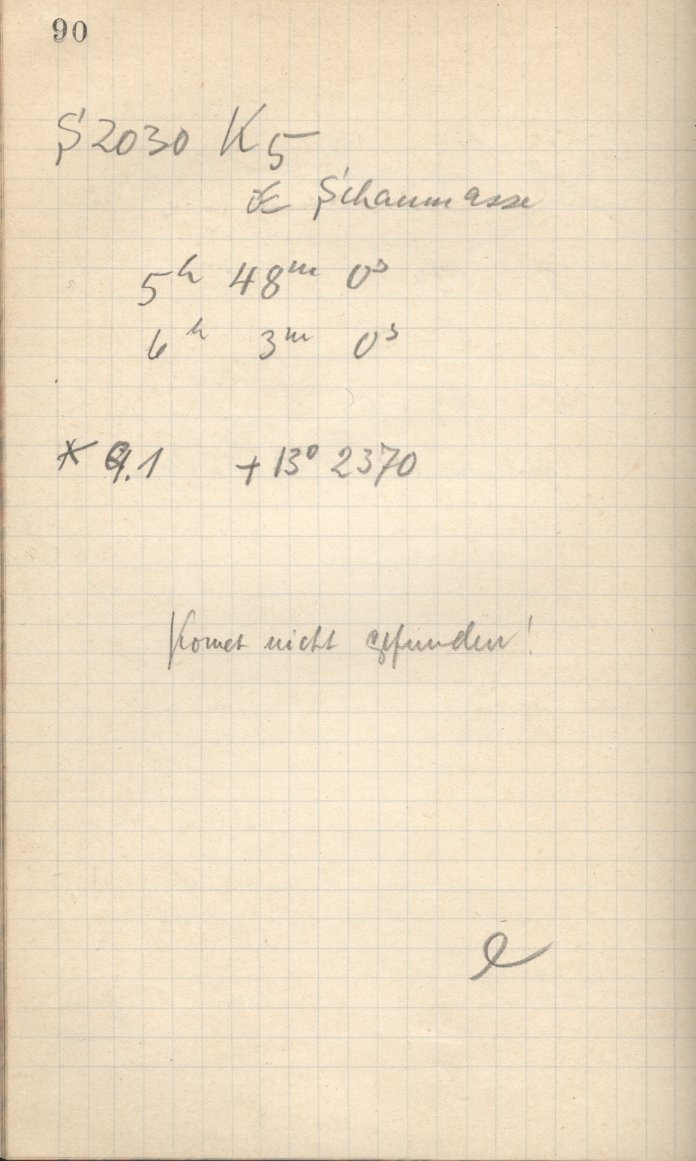 90
S 2030 K5
Schaumasse
5h 48m 0s
6h 3m 0s
* 9.1 +13° 2370
Komet nicht gefunden!